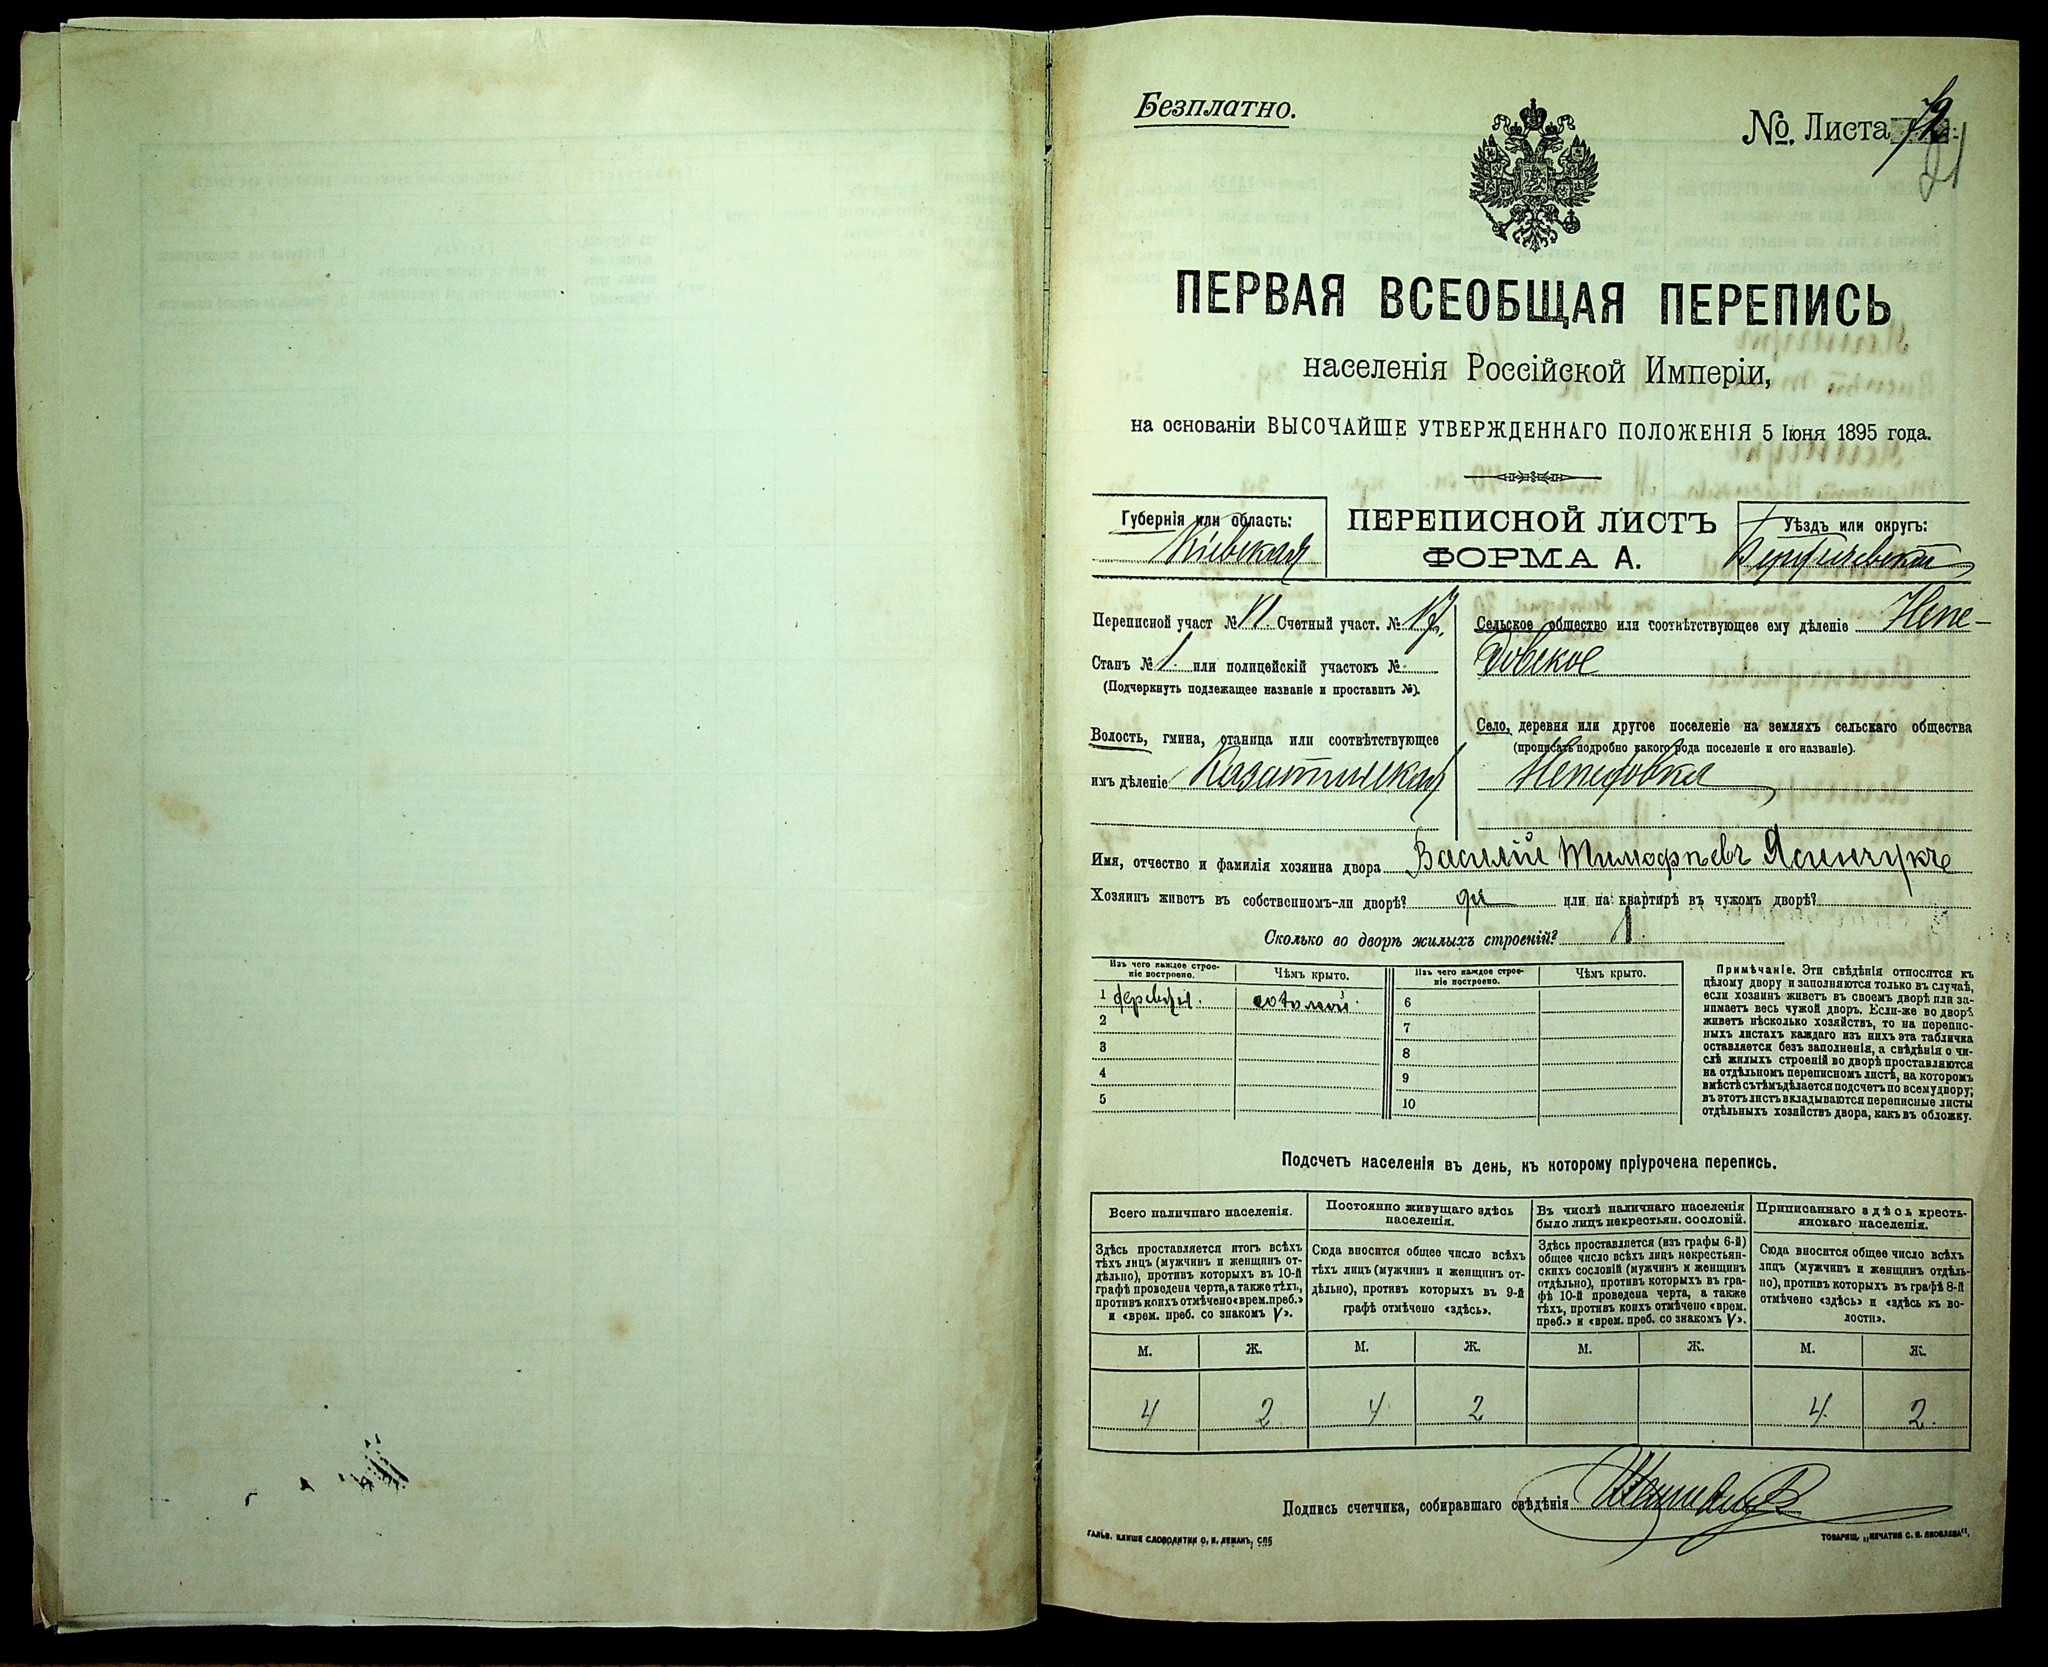 Безплатно.
№. Листа 72
21
ПЕРВАЯ ВСЕОБЩАЯ ПЕРЕПИСЬ
населенія Россійской Имперіи,
на основаніи ВЫСОЧАЙШЕ УТВЕРЖДЕННАГО ПОЛОЖЕНІЯ 5 Іюня 1895 года.
Губернія или область:
Кіевская
ПЕРЕПИСНОЙ ЛИСТЪ
ФОРМА А.
Уѣздъ или округъ:
Бердичевскій
Переписной участ № VI. Счетный участ. №
Станъ № 1. или полицейскій участокъ №
(Подчеркнуть подлежащее названіе и проставить №).
Волость, гмина, станица или соотвѣтствующее
имъ дѣленіе Казатинская
Сельское общество или соотвѣтствующее ему дѣленіе Непе-
довское
Село, деревня или другое поселеніе на земляхъ сельскаго общества
(прописать подробно какого рода поселеніе и его названіе).
Непедовка
Имя, отчество и фамилія хозяина двора Василій Тимофѣевъ Ясинчукъ
Хозяинъ живетъ въ собственномъ-ли дворѣ? да или на квартирѣ въ чужомъ дворѣ?
Сколько во дворѣ жилыхъ строеній? 1.
Изъ чего каждое строе-
ніе построено.
Чѣмъ крыто.
Изъ чего каждое строе-
ніе построено.
Чѣмъ крыто.
1 дерева. соломой 6
2 7
3 8
4 9
5 10
Примѣчаніе. Эти свѣдѣнія относятся къ
цѣлому двору и заполняются только въ случаѣ,
если хозяинъ живетъ въ своемъ дворѣ или за-
нимаетъ весь чужой дворъ. Если-же во дворѣ
живетъ нѣсколько хозяйствъ, то на перепис-
ныхъ листахъ каждаго изъ нихъ эта табличка
оставляется безъ заполненія, а свѣдѣнія о чи-
слѣ жилыхъ строеній во дворѣ проставляются
на отдѣльномъ переписномъ листѣ, на которомъ
вмѣстѣ съ тѣмъ дѣлается подсчетъ по всему двору;
въ этотъ листъ вкладываются переписные листы
отдѣльныхъ хозяйствъ двора, какъ въ обложку.
Подсчетъ населенія въ день, къ которому пріурочена перепись.
Всего наличнаго населенія.
Здѣсь проставляется итогъ всѣхъ
тѣхъ лицъ (мужчинъ и женщинъ от-
дѣльно), противъ которыхъ въ 10-й
графѣ проведена черта, а также тѣхъ,
противъ коихъ отмѣчено «врем. преб.»
и «врем. преб. со знакомъ V».
Постоянно живущаго здѣсь
населенія.
Сюда вносится общее число всѣхъ
тѣхъ лицъ (мужчинъ и женщинъ от-
дѣльно), противъ которыхъ въ 9-й
графѣ отмѣчено «здѣсь».
Въ числѣ наличнаго населенія
было лицъ некрестьян. сословій.
Здѣсь проставляется (изъ графы 6-й)
общее число всѣхъ лицъ некрестьян-
скихъ сословій (мужчинъ и женщинъ
отдѣльно), противъ которыхъ въ гра-
фѣ 10-й проведена черта, а также
тѣхъ, противъ коихъ отмѣчено «врем.
преб.» и «врем. преб. со знакомъ V».
Приписаннаго здѣсь кресть-
янскаго населенія.
Сюда вносится общее число всѣхъ
лицъ (мужчинъ и женщинъ отдѣль-
но), противъ которыхъ въ графѣ 8-й
отмѣчено «здѣсь» и «здѣсь къ во-
лости».
М. Ж. М. Ж. М. Ж. М. Ж.
4 2 4 2 4. 2.
Подпись счетчика, собиравшаго свѣдѣнія
ГАЛЬВ. КЛИШЕ СЛОВОЛИТНИ О. И. ЛЕМАНЪ, СПБ
ТОВАРИЩ. „ПЕЧАТНЯ С. П. ЯКОВЛЕВА“.